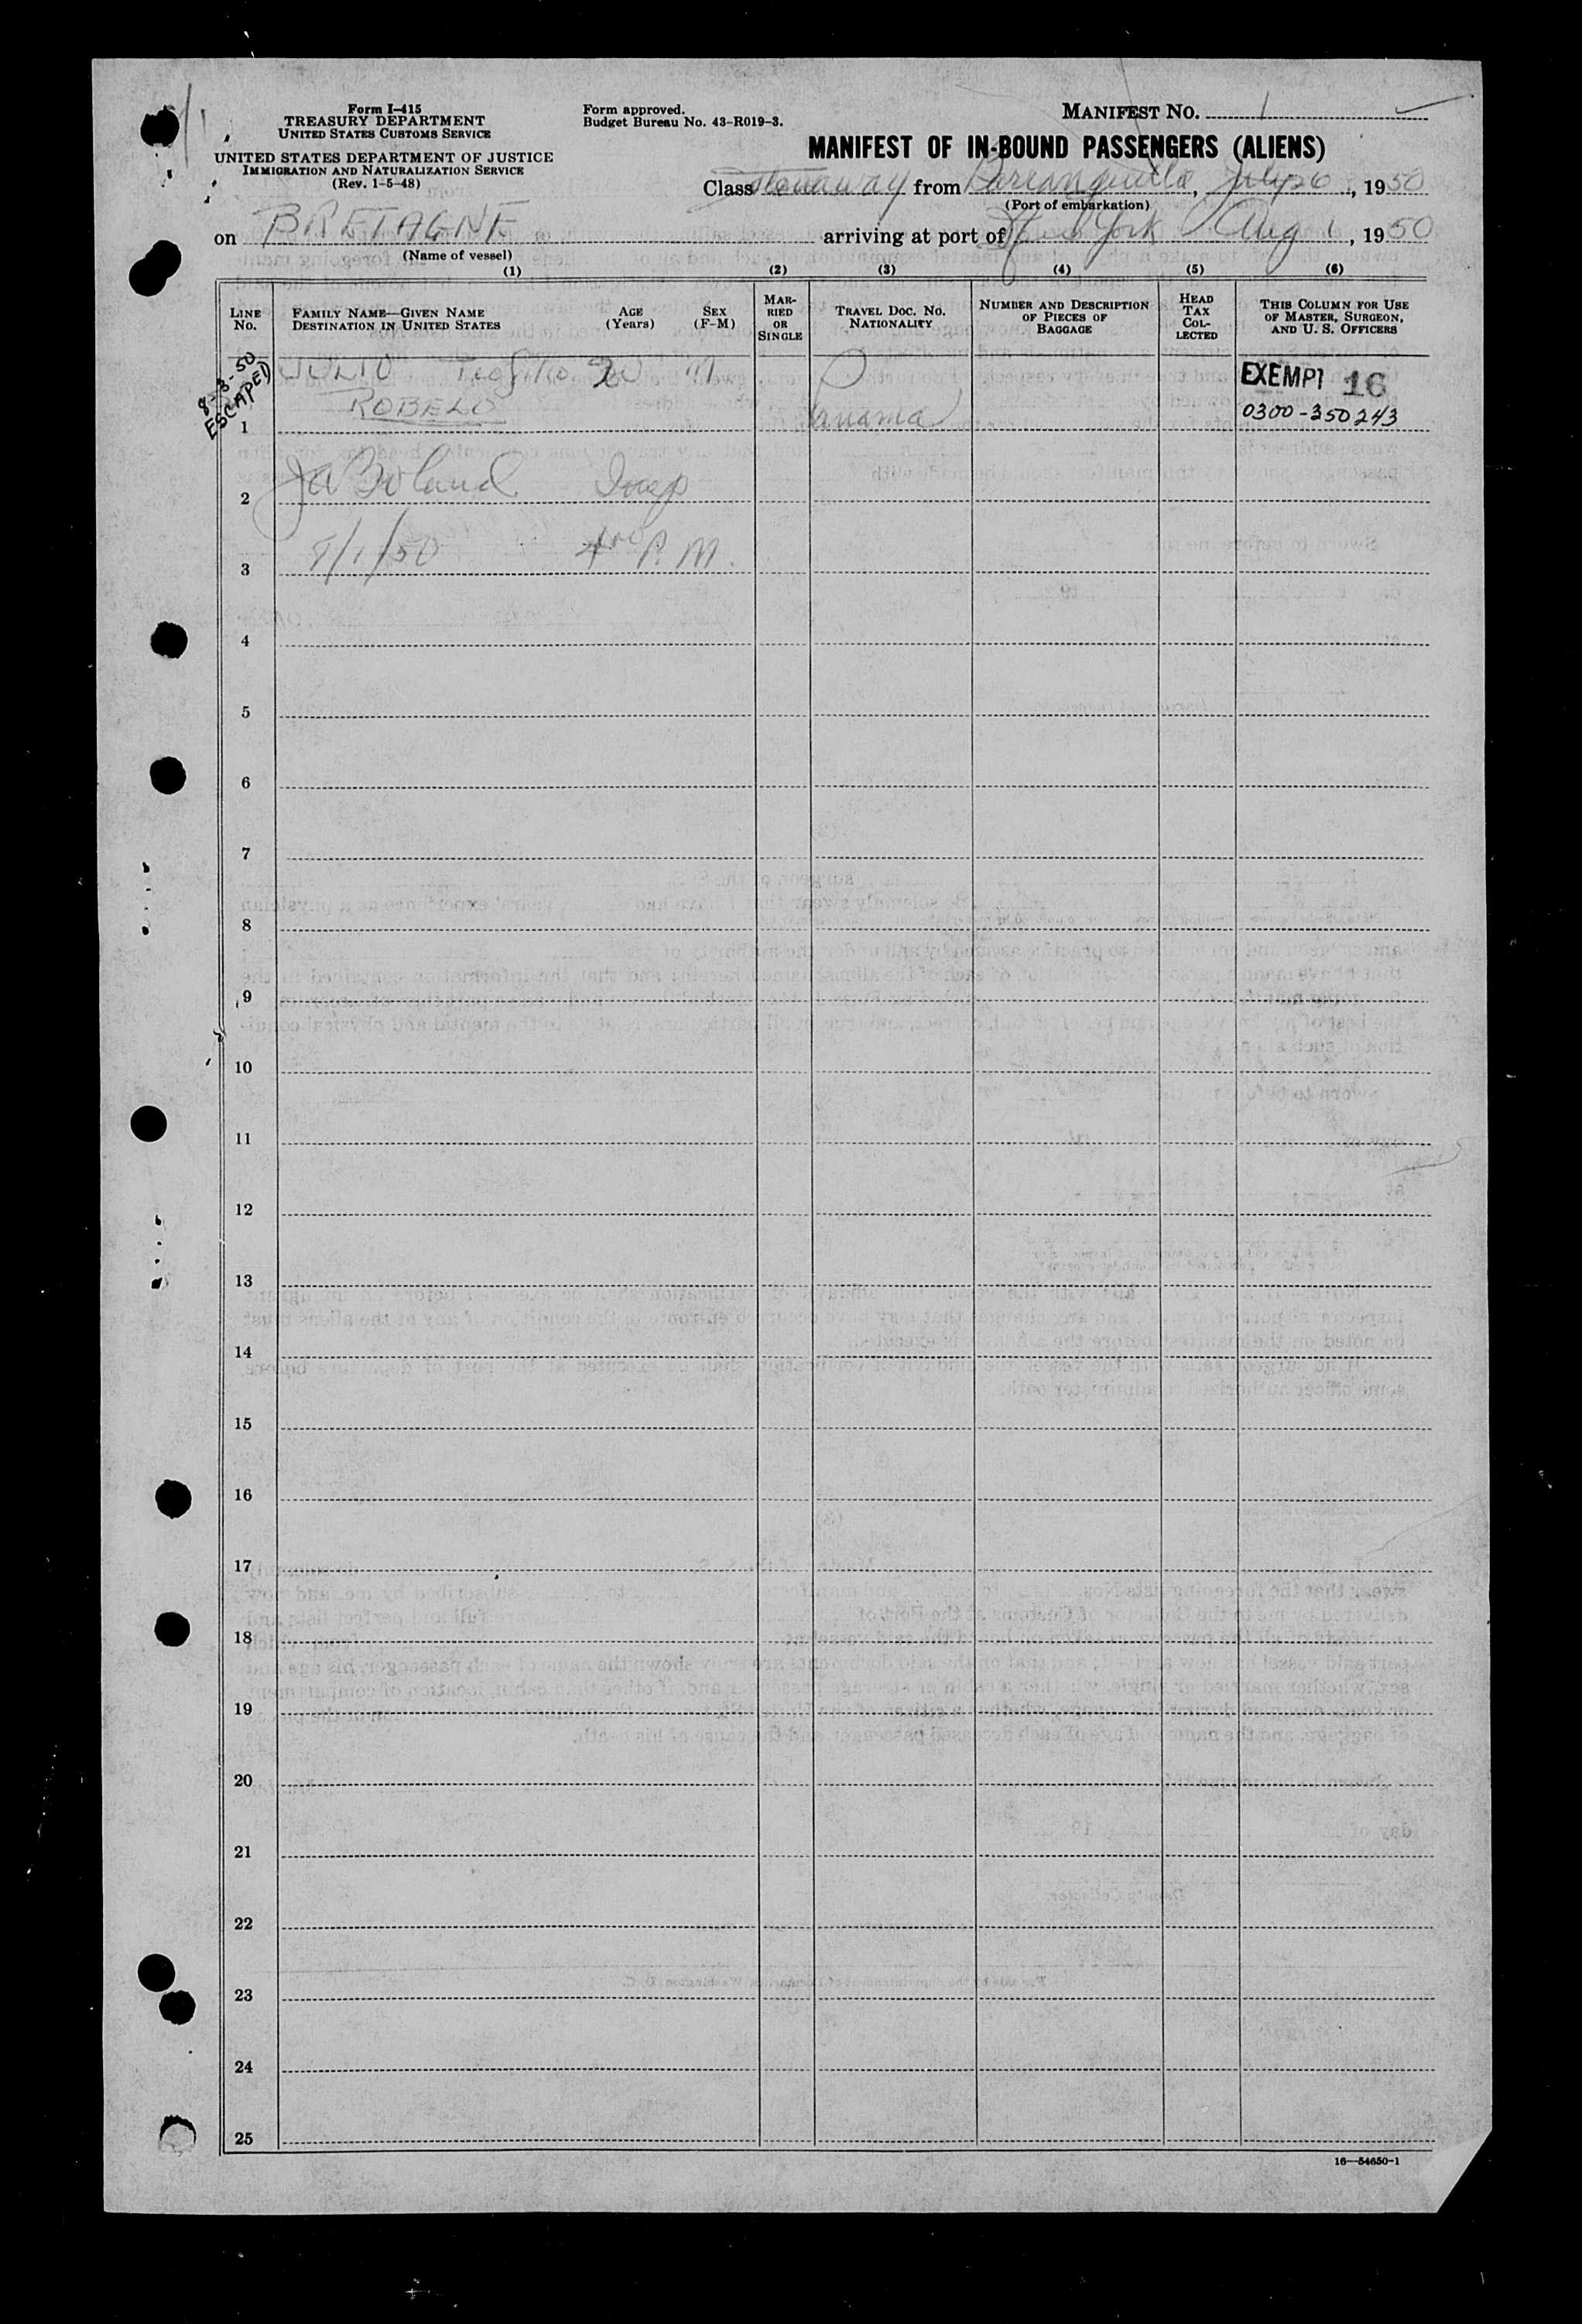 Form I-415
TREASURY DEPARTMENT
UNITED STATES CUSTOMS SERVICE
UNITED STATES DEPARTMENT OF JUSTICE
IMMIGRATION AND NATURALIZATION SERVICE
(Rev. 1-5-48)
Form approved.
Budget Bureau No. 43-R019-3.
MANIFEST NO. 1
MANIFEST OF IN-BOUND PASSENGERS (ALIENS)
Class Stowaway from Barranquilla, July 26, 1950
(Port of embarkation)
on BRETAGNE arriving at port of New York Aug 1, 1950
(Name of vessel)
(1) (2) (3) (4) (5) (6)
LINE NO.
FAMILY NAME—GIVEN NAME
DESTINATION IN UNITED STATES
AGE (Years)
SEX (F-M)
MARRIED OR SINGLE
TRAVEL DOC. NO.
NATIONALITY
NUMBER AND DESCRIPTION OF PIECES OF BAGGAGE
HEAD TAX COLLECTED
THIS COLUMN FOR USE OF MASTER, SURGEON, AND U. S. OFFICERS
8-3-50
ESCAPED
JULIO Teofilo 20 M
EXEMPT 16
1 ROBELO Panama 0300-350243
2 JW Boland Insp
3 8/1/50 400 P.M.
4
5
6
7
8
9
10
11
12
13
14
15
16
17
18
19
20
21
22
23
24
25
16—54650-1